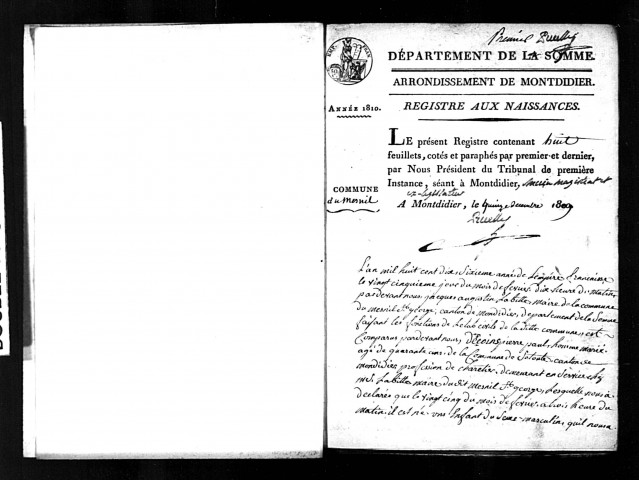 Premier
DÉPARTEMENT DE LA SOMME.
ARRONDISSEMENT DE MONTDIDIER.
ANNÉE 1810.
REGISTRE AUX NAISSANCES.
LE présent Registre contenant huit
feuillets, cotés et paraphés par premier et dernier,
par Nous Président du Tribunal de première
Instance, séant à Montdidier, ancien magistrat et
ex-législateur
COMMUNE
du Mesnil
A Montdidier, le quinze decembre 1809
L'an mil huit cent dix, sixieme année de L'empire francaise
le vingt cinquieme jour du mois de fevrier, dix heure du matin
pardevant nous jacques augustin Labitte, maire de la commune
du mesnil St george, canton de mondidier, departement de la Somme
faisant les fonctions de la ditte commune, est
Comparus pardevant nous, pierre paul, homme marié
agé de quarante ans, de la Commune de canton de
mondidier, profession de charetier, demeurant en service chez
Labitte maire du dit mesnil St george, lesquelle nous a
declarée que le vingt cinq du mois de fevrier, a trois heure du
matin il est née un Enfant du Sexe masculin, quil nomme